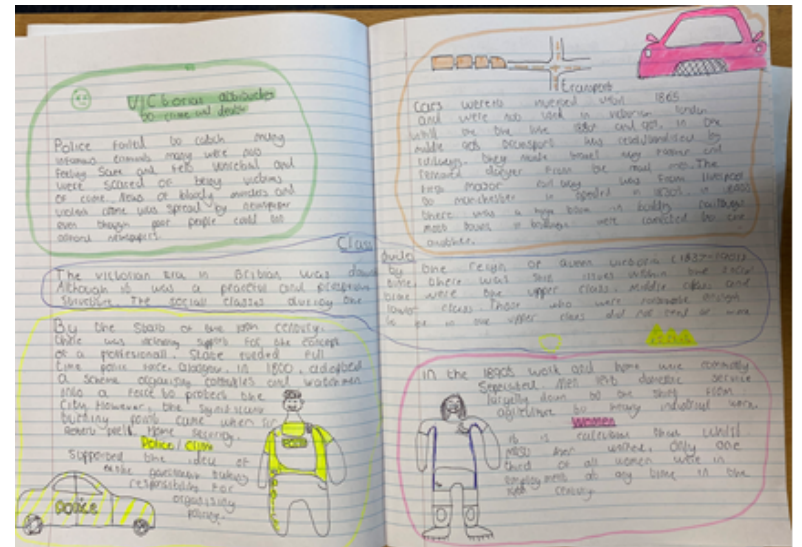 Victorian attitudes
to crime and death
Police failed to catch many
infamous criminals many were not
feeling safe and felt
were scared of being victims
of crime. News of bloody murders and
violent crime was spread by newspaper
even though poor people could not
afford newspapers.
transport
Cars were invented until 1865
and were not used in victorian london
whilst the
middle transport was revolutionised by
railways. they made travel
removed danger from the The
first major railway was from liverpool
to manchester in opened in 1830s.
there was a boom in building railways
most towns in were connected to one
another.
Class divide
The victorian Era in was by the reign of queen victoria (1837-1901)
Although it was a peaceful and time, there was still issues within the social
structure. The social classes during the time were the upper class, middle class and
lower class. Those who were enough
to be in the upper class did not work
By the start of the 19th century.
there was support for the concept
of a professional. State funded full
time police force. Glasgow, in 1800, adopted
a scheme organising constables and watchmen
into a force to protect the
city. However, the significant
turning point came when sir
Robert peel, Home Secretary,
Police / Crime
supported the idea of
the government taking
responsibility for
organising
policing.
Police
Police
In the 1890s work and home were commonly
seperated men left domestic service
largely down to the shift from
agriculture to heavy industrial work.
Women
it is that whilst
most men worked, only one
third of all women were in
employment at any time in the
19th century.